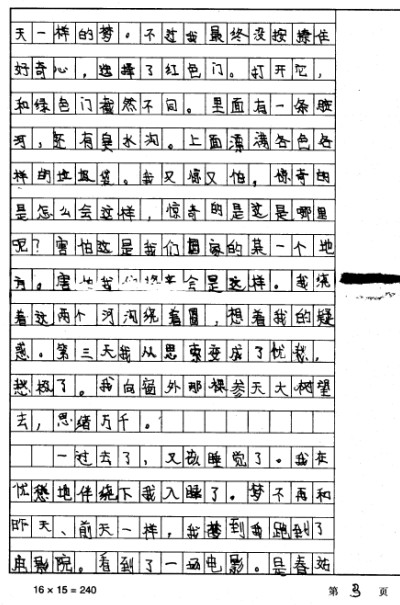 天一样的梦。不过我最终没按捺住
好奇心，选择了红色门。打开它，
和绿色门截然不同。里面有一条脏
河，还有臭水沟。上面漂满各色各
样的垃圾袋。我又惊又怕，惊奇的
是怎么会这样，惊奇的是这是哪里
呢？害怕这是我们国家的某一个地
方。害怕我们将来会是这样。我绕
着这两个河沟绕着圆，想着我的疑
惑。第三天我从思索变成了忧愁，
愁极了。我向窗外那棵参天大树望
去，思绪万千。
一过去了，又该睡觉了。我在
忧愁地伴绕下我入睡了。梦不再和
昨天、前天一样，我梦到我跑到了
电影院。看到了一场电影。是春姑
16×15=240
第 3 页